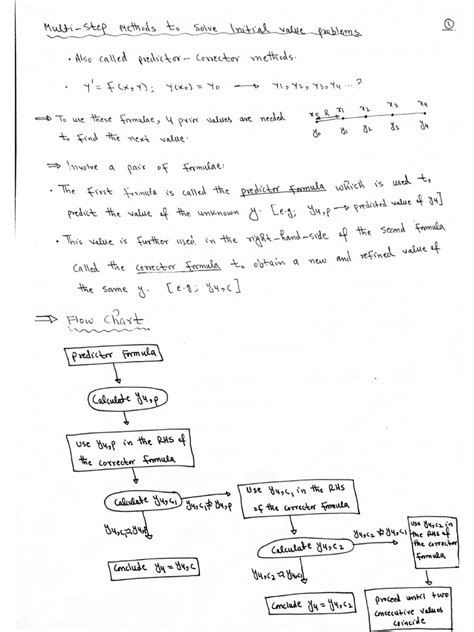 Multi-Step Methods to Solve Initial value problems
①
• Also called predictor-corrector methods.
• y' = f(x,y); y(x0) = y0 → y1, y2, y3, y4 ...?
⇒ To use these formulae, 4 prior values are needed
to find the next value.
x0 h x1 x2 x3 x4
y0 y1 y2 y3 y4
⇒ Involve a pair of formulae.
• The first formula is called the predictor formula which is used to
predict the value of the unknown y. [e.g; y4,p → predicted value of y4]
• This value is further used in the right-hand-side of the second formula
called the corrector formula to obtain a new and refined value of
the same y. [e.g; y4,c]
⇒ Flow Chart
Predictor Formula
Calculate y4,p
Use y4,p in the RHS of
the corrector formula
Calculate y4,c1
y4,c1 ≉ y4,p
y4,c1 ≈ y4,p
Conclude y4 = y4,c
Use y4,c1 in the RHS
of the corrector formula
Calculate y4,c2
y4,c2 ≉ y4,c1
y4,c2 ≈ y4,c1
Conclude y4 = y4,c2
Use y4,c2 in
the RHS of
the corrector
formula
Proceed until two
consecutive values
coincide